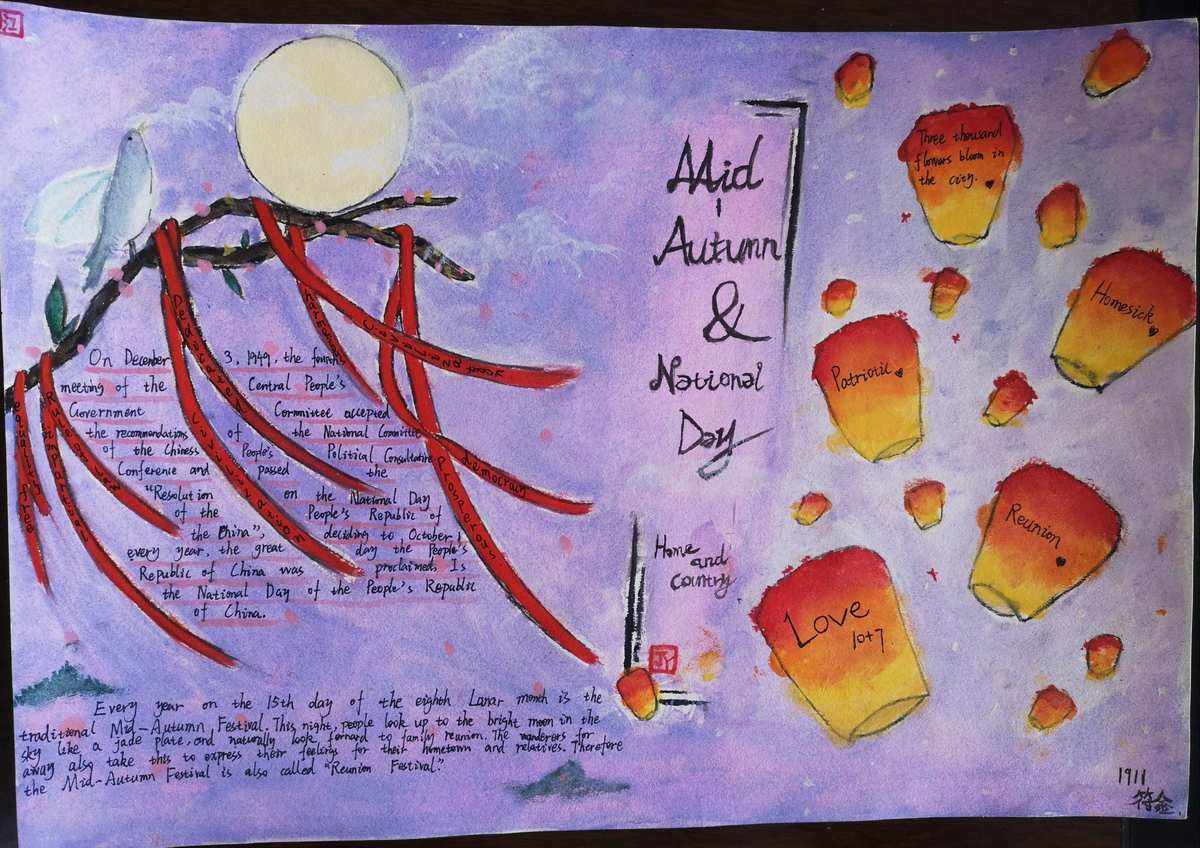 Mid
-
Autumn
&
National
Day
Home
and
Country
On December 3, 1949, the fourth
meeting of the Central People's
Government Committee accepted
the recommendations of the National Committee
of the Chiness People's Political Consultative
Conference and passed the
"Resolution on the National Day
of the People's Republic of
the China", deciding to October 1
every year, the great day the People's
Republic of China was proclaimed, Is
the National Day of the People's Republic
of China.
equality free
Rule of law
Dedicated
civilization
democracy
prosperous
Every year on the 15th day of the eighth Lanar month is the
traditional Mid-Autumn Festival. This night, people look up to the bright moon in the
sky like a jade plate, and naturally look forward to family reunion. The wanderers far
away also take this to express their feelings for their hometown and relatives. Therefore
the Mid-Autumn Festival is also called "Reunion Festival".
Three thousand
flowers bloom in
the city.
Homesick
Patriotic
Reunion
Love
10+7
1911
符金